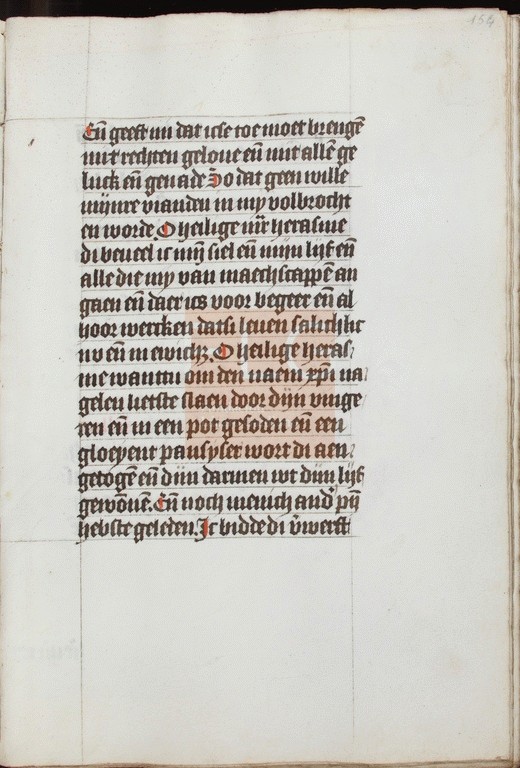 154
Eñ geeft mi dat icse toe moet brengē
mit rechten geloue eñ mit allē ge
luck eñ genade So dat geen wille
mijnre vianden in my volbrocht
en worde. O heilige mr̄ herasme
di beueel ic mijn siel eñ mijn lijf eñ
alle die my van maechscappē an
gaen eñ daer ics voor begeer eñ al
hoor wercken datsi leuen salichlic
nv eñ in ewich₃. O heilige heras/
me wanttu om den naem xp̄i na/
gelen lietste slaen door dijn vinge
ren eñ in een pot gesoden eñ een
gloeyent pansyser wort di aen/
getogē eñ dijn darmen wt dijn lijf
gewōnē. Eñ noch menich and' pijn
hebste geleden. Ic bidde di v̄werft